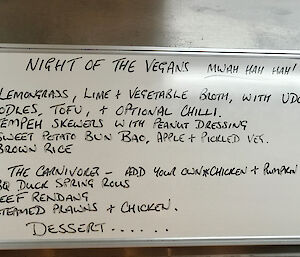 NIGHT OF THE VEGANS MWAH HAH HAH!
LEMONGRASS, LIME + VEGETABLE BROTH, WITH UDO
OODLES, TOFU, + OPTIONAL CHILLI.
TEMPEH SKEWERS WITH PEANUT DRESSING
SWEET POTATO BUN BAO, APPLE + PICKLED VEG.
BROWN RICE
THE CARNIVORES - ADD YOUR OWN CHICKEN + PUMPKIN
BQ DUCK SPRING ROLLS
EEF RENDANG
TEAMED PRAWNS + CHICKEN.
DESSERT......